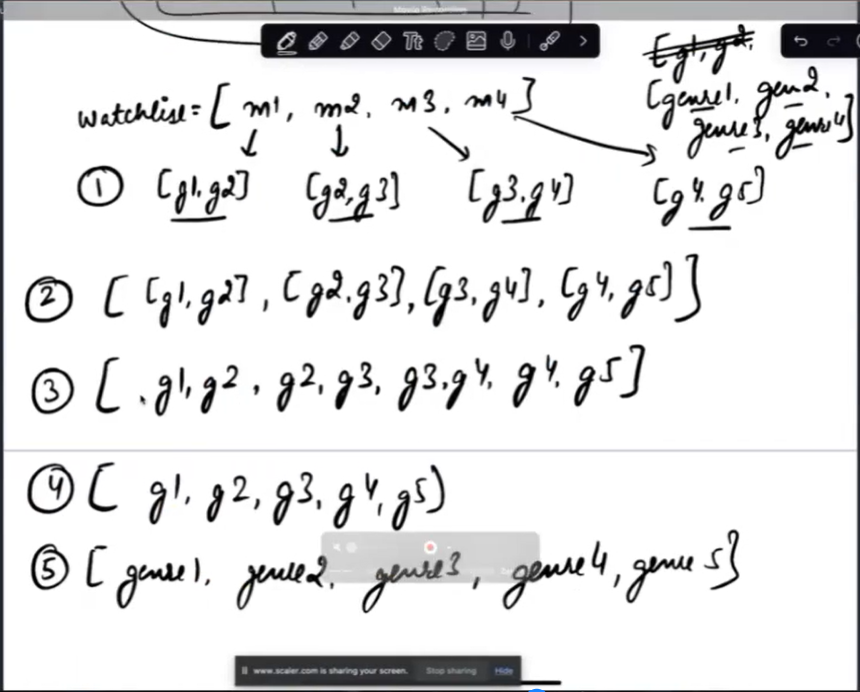 Movie Recommen
Tt
[g1, g2,
watchlist = [ m1, m2, m3, m4 ]
[genre1, genre2,
genre3, genre4]
① [g1, g2] [g2, g3] [g3, g4] [g4, g5]
② [ [g1, g2], [g2, g3], [g3, g4], [g4, g5] ]
③ [ g1, g2, g2, g3, g3, g4, g4, g5 ]
④ [ g1, g2, g3, g4, g5 )
⑤ [ genre1, genre2, genre3, genre4, genre5 ]
www.scaler.com is sharing your screen. Stop sharing Hide